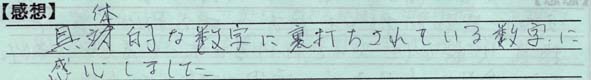 【感想】
具体的な数字に裏打ちされている数字に
感心しました